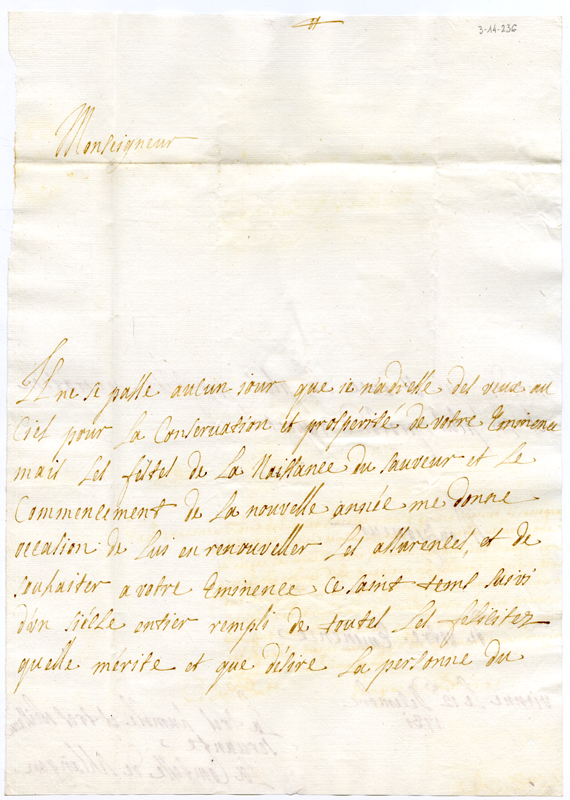 3-14-236
Monseigneur
Il ne se passe aucun iour que ie nadresse des vœux au
Ciel pour la Conservation et prospérité de votre Eminence
mais les fêtes de la Naissance du sauveur et le
Commencement de la nouvelle année me donne
occasion de lui en renouveller les assurences, et de
souhaiter a votre Eminence ce saint tems suivi
d'vn siécle entier rempli de toutes les félicitez
quelle mérite et que désire la personne du